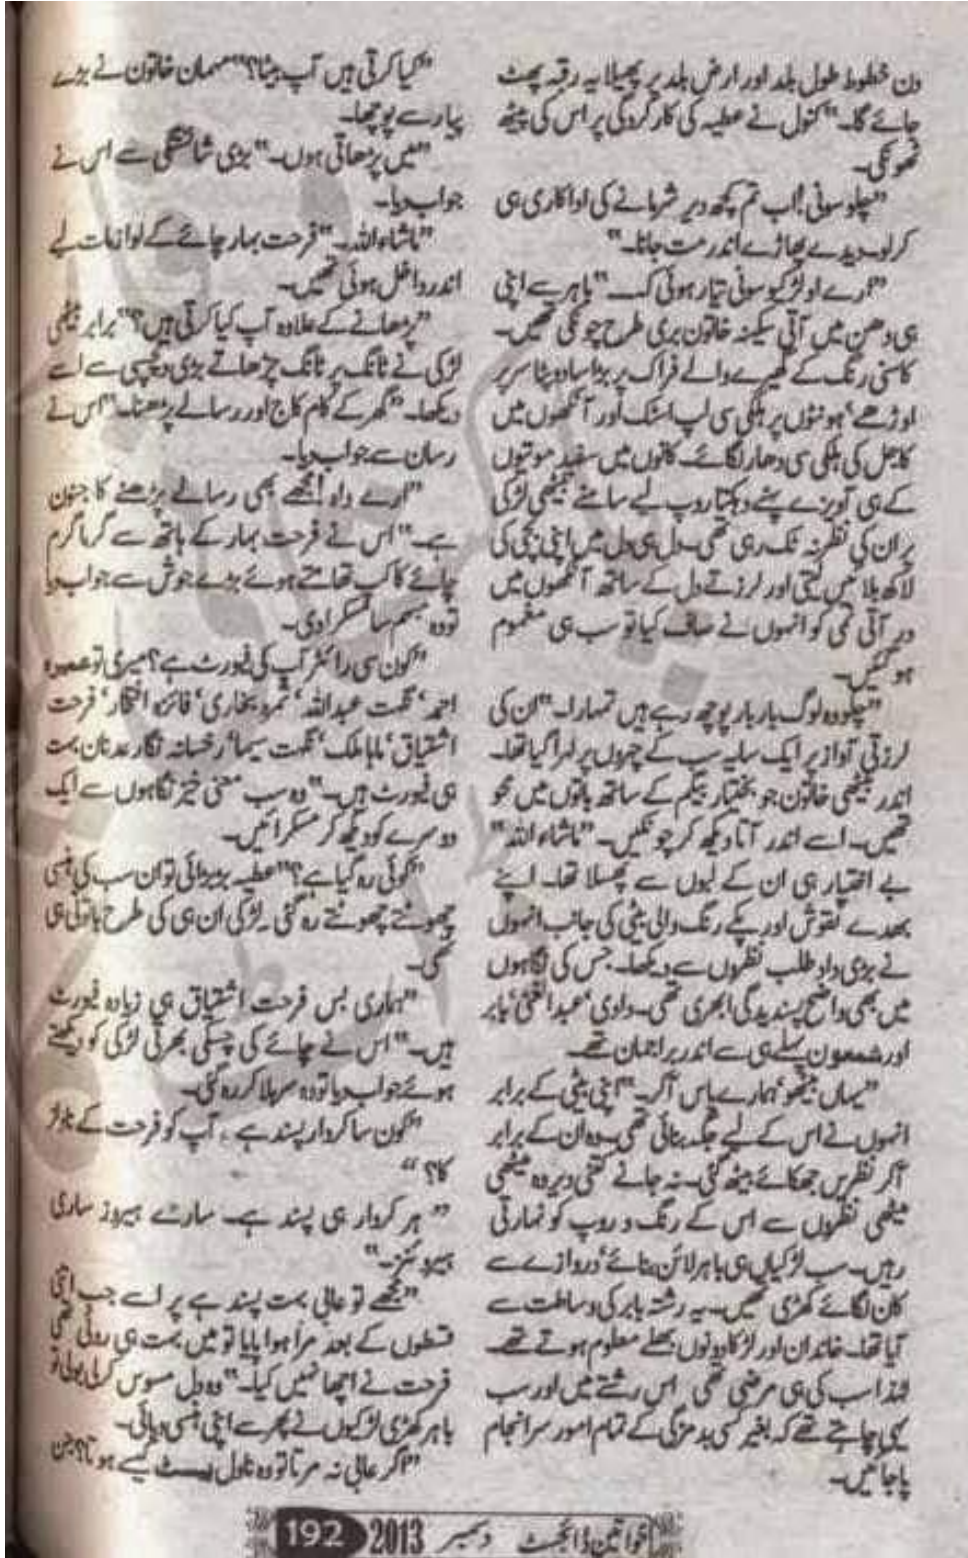 دن خطوط طول بلد اور ارض بلد پر پھیلا یہ رقبہ پھٹ
جائے گا۔" کنول نے عطیہ کی کارکردگی پر اس کی پیٹھ
ٹھونکی۔
"چلو سونی! اب تم کچھ دیر شرمانے کی اداکاری ہی
کر لو۔ دیدے پھاڑے اندر مت جانا۔"
"ارے او لڑکیو سونی تیار ہوئی کہ۔" باہر سے اپنی
ہی دھن میں آتی سکینہ خاتون بری طرح چونکی تھیں۔
کاسنی رنگ کے گھیرے والے فراک پر بڑا سا دوپٹا سر پر
اوڑھے' ہونٹوں پر ہلکی سی لپ اسٹک اور آنکھوں میں
کاجل کی ہلکی سی دھار لگائے۔ کانوں میں سفید موتیوں
کے ہی آویزے پہنے دہکتا روپ لیے سامنے بیٹھی لڑکی
پر ان کی نظر نہ ٹک رہی تھی۔ دل ہی دل میں اپنی بچی کی
لاکھ بلائیں لیتی اور لرزتے دل کے ساتھ آنکھوں میں
در آتی نمی کو انہوں نے صاف کیا تو سب ہی مغموم
ہو گئیں۔
"چلو وہ لوگ بار بار پوچھ رہے ہیں تمہارا۔" ان کی
لرزتی آواز پر ایک سایہ سب کے چہروں پر لہرا گیا تھا۔
اندر بیٹھی خاتون جو بختیار بیگم کے ساتھ باتوں میں محو
تھیں۔ اسے اندر آتا دیکھ کر چونکیں۔ "ماشاء اللہ"
بے اختیار ہی ان کے لبوں سے پھسلا تھا۔ اپنے
بھدے نقوش اور پکے رنگ والی بیٹی کی جانب انہوں
نے بڑی داد طلب نظروں سے دیکھا۔ جس کی نگاہوں
میں بھی واضح پسندیدگی ابھری تھی۔ دادی' عبدالغنی' بابر
اور شمعون پہلے ہی سے اندر براجمان تھے۔
"یہاں بیٹھو' ہمارے پاس آ کر۔" اپنی بیٹی کے برابر
انہوں نے اس کے لیے جگہ بنائی تھی۔ وہ ان کے برابر
آکر نظریں جھکائے بیٹھ گئی۔ نہ جانے کتنی دیر وہ میٹھی
میٹھی نظروں سے اس کے رنگ و روپ کو نہارتی
رہیں۔ سب لڑکیاں ہی باہر لائن بنائے' دروازے سے
کان لگائے کھڑی تھیں۔ یہ رشتہ بابر کی وساطت سے
آیا تھا۔ خاندان اور لڑکا دونوں بھلے معلوم ہوتے تھے۔
لہٰذا سب کی ہی مرضی تھی اس رشتے میں اور سب
یہی چاہتے تھے کہ بغیر کسی بدمزگی کے تمام امور سرانجام
پا جائیں۔
"کیا کرتی ہیں آپ بیٹا؟" مہمان خاتون نے بڑے
پیار سے پوچھا۔
"میں پڑھاتی ہوں۔" بڑی شائستگی سے اس نے
جواب دیا۔
"ماشاء اللہ۔" فرحت بہار چائے کے لوازمات لیے
اندر داخل ہوئی تھیں۔
"پڑھانے کے علاوہ آپ کیا کرتی ہیں؟" برابر بیٹھی
لڑکی نے ٹانگ پر ٹانگ چڑھاتے بڑی دلچسپی سے اسے
دیکھا۔ "گھر کے کام کاج اور رسالے پڑھنا۔" اس نے
رسان سے جواب دیا۔
"ارے واہ! مجھے بھی رسالے پڑھنے کا جنون
ہے۔" اس نے فرحت بہار کے ہاتھ سے گرما گرم
چائے کا کپ تھامتے ہوئے بڑے جوش سے جواب دیا
تو وہ مبہم سا مسکرا دی۔
"کون سی رائٹر آپ کی فیورٹ ہے؟ میری تو عمیرہ
احمد' نگہت عبداللہ' ثمرہ بخاری' فائزہ افتخار' فرحت
اشتیاق' ماہا ملک' نگہت سیما' رخسانہ نگار عدنان بہت
ہی فیورٹ ہیں۔" وہ سب معنی خیز نگاہوں سے ایک
دوسرے کو دیکھ کر مسکرائیں۔
"کوئی رہ گیا ہے؟" عطیہ بڑبڑائی تو ان سب کی ہنسی
چھوٹتے چھوٹتے رہ گئی۔ لڑکی ان ہی کی طرح باتونی ہی
تھی۔
"ہماری بس فرحت اشتیاق ہی زیادہ فیورٹ
ہیں۔" اس نے چائے کی چسکی بھرتی لڑکی کو دیکھتے
ہوئے جواب دیا تو وہ سر ہلا کر رہ گئی۔
"کون سا کردار پسند ہے' آپ کو فرحت کے ناولز
کا؟"
"ہر کردار ہی پسند ہے۔ سارے ہیروز ساری
ہیروئنز۔"
"مجھے تو عالی بہت پسند ہے پر اسے جب اتنی
قسطوں کے بعد مرا ہوا پایا تو میں بہت ہی روئی تھی
فرحت نے اچھا نہیں کیا۔" وہ دل مسوس کر لی بولی تو
باہر کھڑی لڑکیوں نے پھر سے اپنی ہنسی دبائی۔
"اگر عالی نہ مرتا تو وہ ناول بیسٹ کیسے ہوتا؟ جن
خواتین ڈائجسٹ دسمبر 2013 192